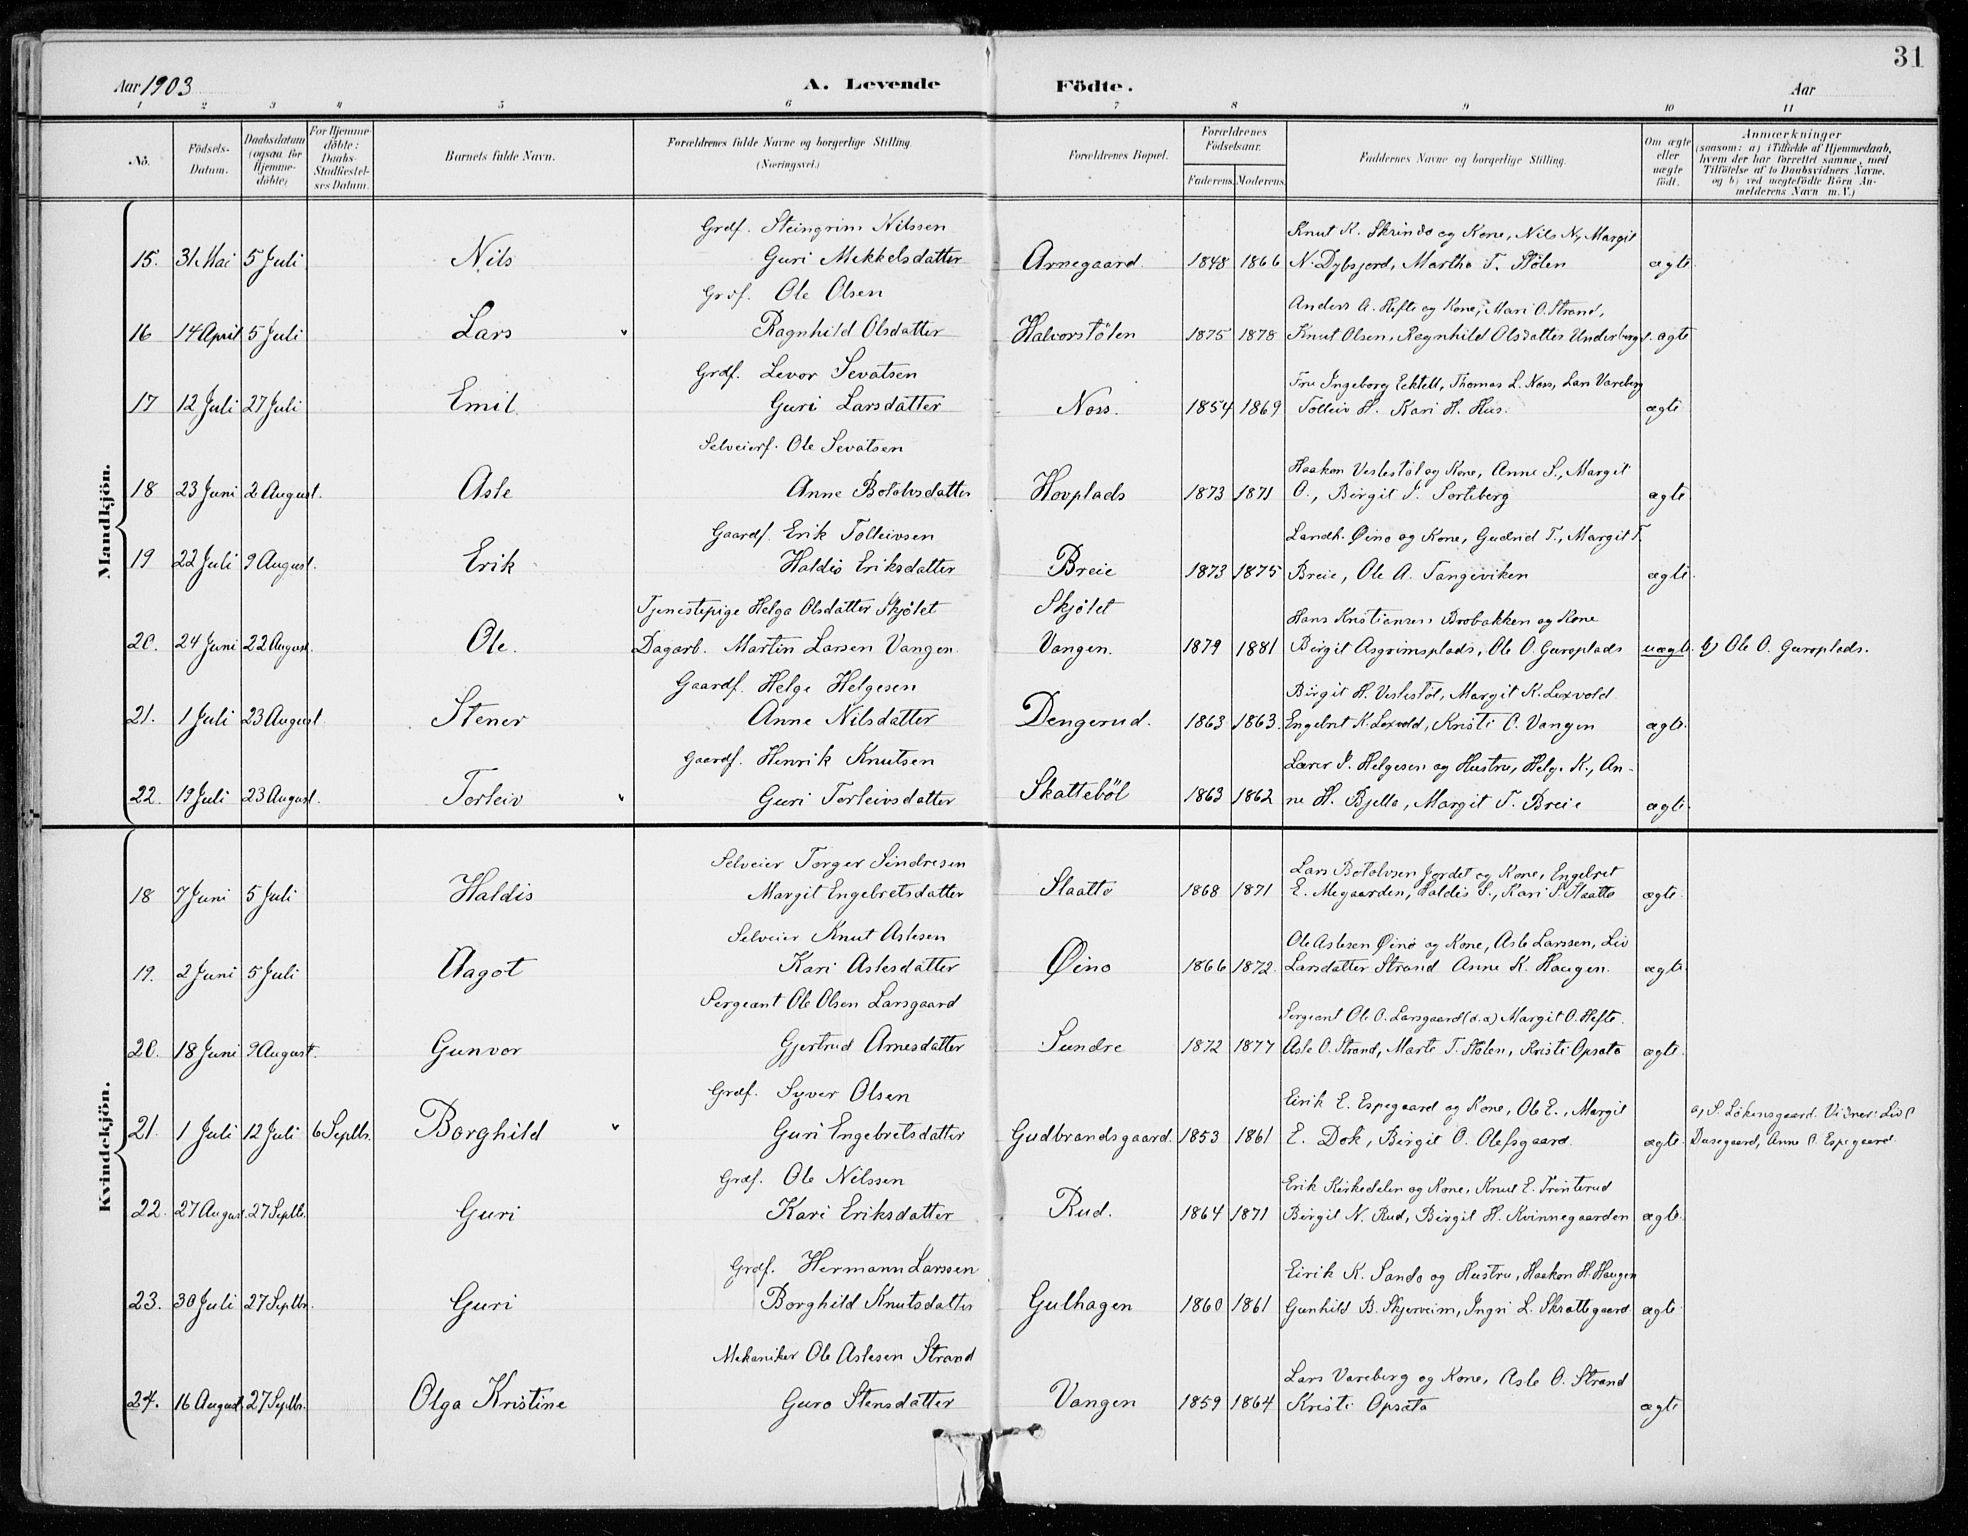 31
Aar 1903 A. Levende Födte. Aar
1 2 3 4 5 6 7 8 9 10 11
No. Födsels-Datum. Daabsdatum (ogsaa for Hjemmedöbte) For Hjemmedöbte: Daabs-Stadfæstelses Datum. Barnets fulde Navn. Forældrenes fulde Navne og borgerlige Stilling. (Næringsvei.) Forældrenes Bopæl. Forældrenes Födselsaar. Faderens. Moderens. Faddernes Navne og borgerlige Stilling. Om ægte eller uægte födt. Anmærkninger (saasom: a) i Tilfælde af Hjemmedaab, hvem der har forrettet samme, med Tilföielse af to Daabsvidners Navne, og b) ved uægtefödte Börn Anmelderens Navn m. V.)
Mandkjön.
Grdf. Steingrim Nilssen Knut K. Skrindo og Kone, Nils N., Margit
15. 31 Mai 5 Juli Nils Guri Mekkelsdatter Arnegaard. 1848 1866 N. Dybsjord, Martha T. Stølen ægte
Grdf. Ole Olsen Anders A. Hefte og Kone, Mari O. Strand,
16 14 April 5 Juli Lars " Ragnhild Olsdatter Halvorstølen 1875 1878 Knut Olsen, Ragnhild Olsdatter Underberg ægte
Grdf. Levor Sevatsen Fru Ingeborg Ecktell, Thomas L. Noss, Lars Vareberg
17 12 Juli 27 Juli Emil Guri Larsdatter Noss. 1854 1869 Tolleiv H. Kari H. Hus. ægte
Selveierf. Ole Sevatsen Haakon Veslestøl og Kone, Anne S., Margit
18 23 Juni 2 August. Asle Anne Botolvsdatter Hovplads 1873 1871 O., Birgit S. Sorteberg ægte
Gaardf. Erik Tolleivsen Landh. Øino og Kone, Gudrid T., Margit T.
19 22 Juli 9 August. Erik Haldis Eriksdatter Breie 1873 1875 Breie, Ole A. Tangeviken ægte.
Tjenestepige Helga Olsdatter Skjølet Skjølet Hans Kristiansen Brobakken og Kone
20. 24 Juni 22 August. Ole. Dagarb. Martin Larsen Vangen Vangen. 1879 1881 Birgit Asgrimsplads, Ole O. Guroplads uægte. b) Ole O. Guroplads.
Gaardf. Helge Helgesen Birgit H. Veslestøl, Margit K. Lexvold
21. 1 Juli 23 August. Stener Anne Nilsdatter Dengerud. 1863 1863. Engebrit K. Lexvold, Kristi O. Vangen ægte.
Gaardf. Henrik Knutsen Lærer S. Helgesen og Hustru, Helge K., An-
22. 19 Juli 23 August. Torleiv " Guri Torleivsdatter Skattebøl 1863 1862 ne H. Bjella, Margit T. Breie ægte.
Kvindekjön.
Selveier Torger Sindresen Lars Botolvsen Jordet og Kone, Engebret
18 7 Juni 5 Juli Haldis Margit Engebretsdatter Slaatto 1868 1871 E. Megaarden, Haldis S., Kari S. Slaatto ægte.
Selveier Knut Aslesen Ole Aslesen Øino og Kone, Asle Larssen, Liv
19. 2 Juni 5 Juli Aagot Kari Aslesdatter Øino 1866 1872. Larsdatter Strand Anne K. Haugen. ægte
Sergeant Ole Olsen Larsgaard Sergeant Ole O. Larsgaard (d.a) Margit O. Hefte.
20. 18 Juni 9 August. Gunvor Gjertrud Arnesdatter Sundre 1872 1877 Asle O. Strand, Marte T. Stølen, Kristi Opsata ægte.
Grdf. Syver Olsen Eirik E. Espegaard og Kone, Ole E., Margit a, S. Løkensgaard. Vidner: Liv O
21. 1 Juli 12 Juli 6 Septbr. Borghild " Guri Engebretsdatter Gudbrandsgaard. 1853 1861 E. Dok, Birgit O. Olefsgaard. ægte. Dusegaard, Anne O. Espegaard
Grdf. Ole Nilssen Erik Kirkedelen og Kone, Knut E. Trinterud
22. 27 August. 27 Septbr. Guri Kari Eriksdatter Rud. 1864 1871 Birgit N. Rud, Birgit H. Kvinnegaarden ægte.
Grdf. Hermann Larssen Eirik K. Sando og Hustru, Haakon H. Haugen
23. 30 Juli 27 Septbr. Guri Borghild Knutsdatter Gulhagen 1860 1861 Gunhild B. Skjerveim, Ingri L. Skrattegaard ægte
Mekaniker Ole Aslesen Strand Lars Vareberg og Kone, Asle O. Strand
24. 16 August. 27 Septbr. Olga Kristine Guro Stensdatter Vangen 1859 1864 Kristi Opsata ægte